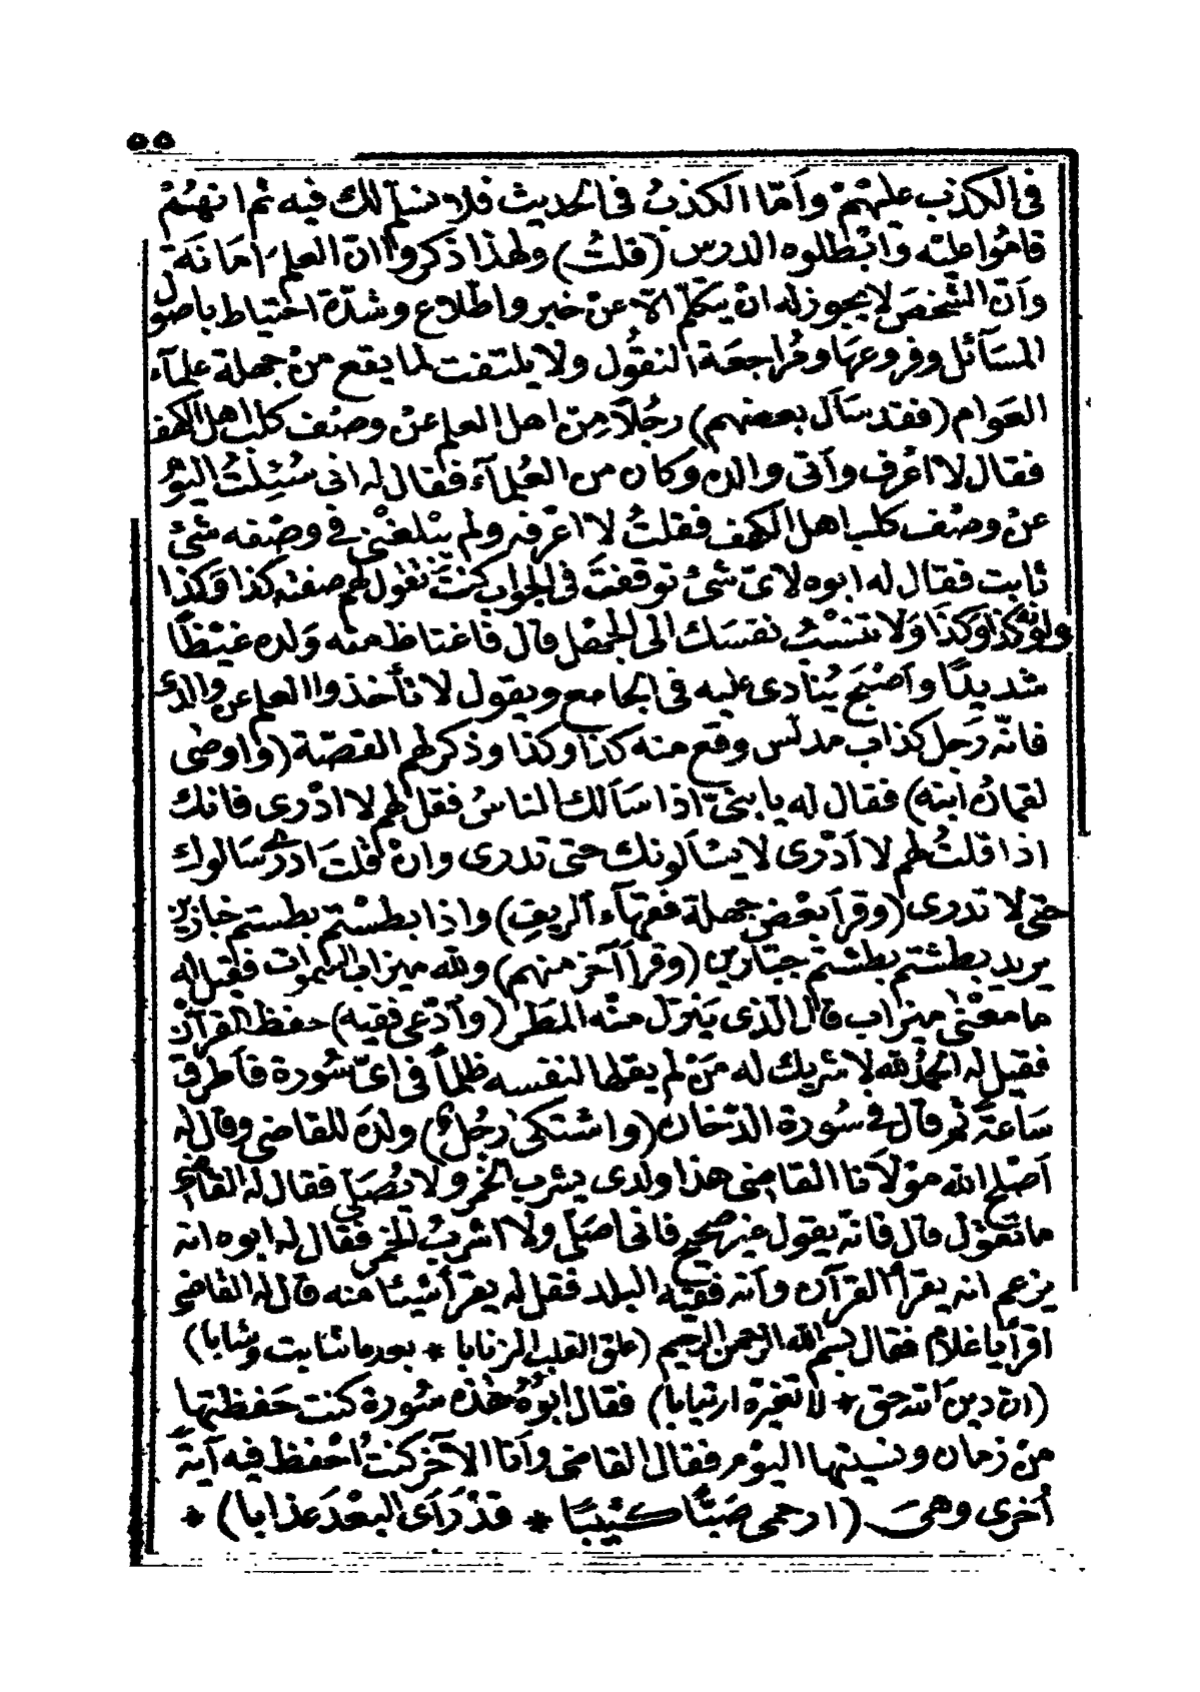 ٥٥
فى الكذب عليهم وأمّا الكذبُ فى الحديث فلا نسلم لك فيه ثم انهُمْ
قاموا عليه وابْطلوه الدرس (قلتُ) ولهذا ذكروا انّ العلم امَانَة
وأنّ الشخصَ لا يجوز له انْ يتكلّم الّا عنْ خبر واطّلاع وشدّة احتياط باصول
المسَآئل وفروعهَا ومُراجعَة النقُول ولا يلتفت لما يقع منْ جهلة علمآء
العَوام (فقد سَأل بعضهم) رجُلًا مِنْ اهل العلم عنْ وصْف كلب اهل الكهف
فقال لا اعْرف وأتى والده وكان من العُلمآء فقال له انى سُئِلْتُ اليوْم
عنْ وصْف كلب اهل الكهف فقلتُ لا اعْرفه ولم يبْلغنى فى وصْفه شئ
ثابت فقال له ابوه لاىّ شئ توقفتَ فى الجواب كنتَ تقول لهم صفته كذا وَكذا
ولونه كذا وكذَا وَلا تنسُبْ نفسَك الى الجهْل قال فاغتاظ منه وَلده غيْظًا
شديدًا وأصْبحَ يُنادى عليه فى الجامع ويقول لا تأخذوا العلم عن والدى
فانّه رَجل كذاب مدلّس وقع منه كذا وكذا وذكر لهم القصّة (واوصٰى
لقمانُ ابنه) فقال له يا بنىّ اذا سَألك الناسُ فقل لهم لا ادْرى فانك
اذا قلتُ لهم لا أدْرى لا يسْألونك حتى تدرى وانْ قلتَ ادرى سَالوك
حتى لا تدرى (وقرأ بعْض جهلة فقهآء الريف) واذا بطسْتم بطستم خبازين
يريد بطشتم بطشتم جبّارين (وقرأ آخر منهم) ولله ميزاب السموات فقيل له
ما معْنى ميزاب قال الّذى يَنزل منْه المطَر (وأدّعى فقيه) حفظ القرآن
فقيل له الحمْدُ لله لا شريك له مَنْ لم يقلها لنفسه ظلماً فى اىّ سُورة فأطرق
سَاعَة ثم قال فى سُورة الدّخان (واشتكى رجُل) ولدَه للقاضى وقال له
أصْلح الله موْلَانا القاضى هذا ولدى يشرب الخمر ولا يصَلى فقال له القاضى
ما تقوْل قال فانّه يقول غير صحيح فانى اصَلى ولا اشربُ الخمر فقال له ابوه انه
يزعم انه يقرأ القرآن وأنه فقيْه البلد فقل له يقرأ شيئًا منه قال له القاضى
اقرأ يا غلام فقال بسم الله الرحمن الرحيم (علق القلب الربابا * بعد ما شابت وشابا)
(ان دين الله حق * لا تغيّره ارتيابا) فقال ابُوهُ هٰذه سُورة كنت حَفظتها
منْ زمان ونسيتها اليوْم فقال القاضى وأنا الآخر كنتُ احْفظ فيه آيةً
أخرى وهىَ (ارحمى صَبًّا كئيْبًا * قدْ رَأى البعْدَ عذابا) *